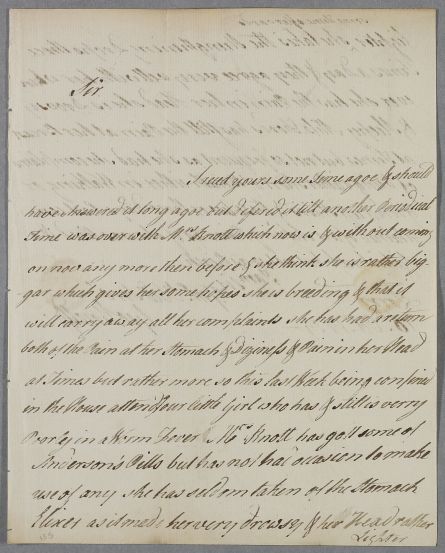 Sir
I recd yours some time agoe & should
have Answered it long agoe but defered it till another Periodical
Time was over with Mrs Knott which now is & without coming
on now any more then before & she think she is rather big-
gar which gives her some hopes she is breeding & that it
will carry away all her complaints she has had a return
both of the Pain at her Stomach & Diziness & Pain in her Head
at Times but rather more so this last Week being confined
in the House attending our little Girl who has & still is verry
Poorly in a Worm Fever Mrs Knott has gott some of
Anderson's Pills but has not had occasion to make
use of any she has seldom taken of the Stomach
Elixer as it made her very drowsy & her Head rather
Lighter